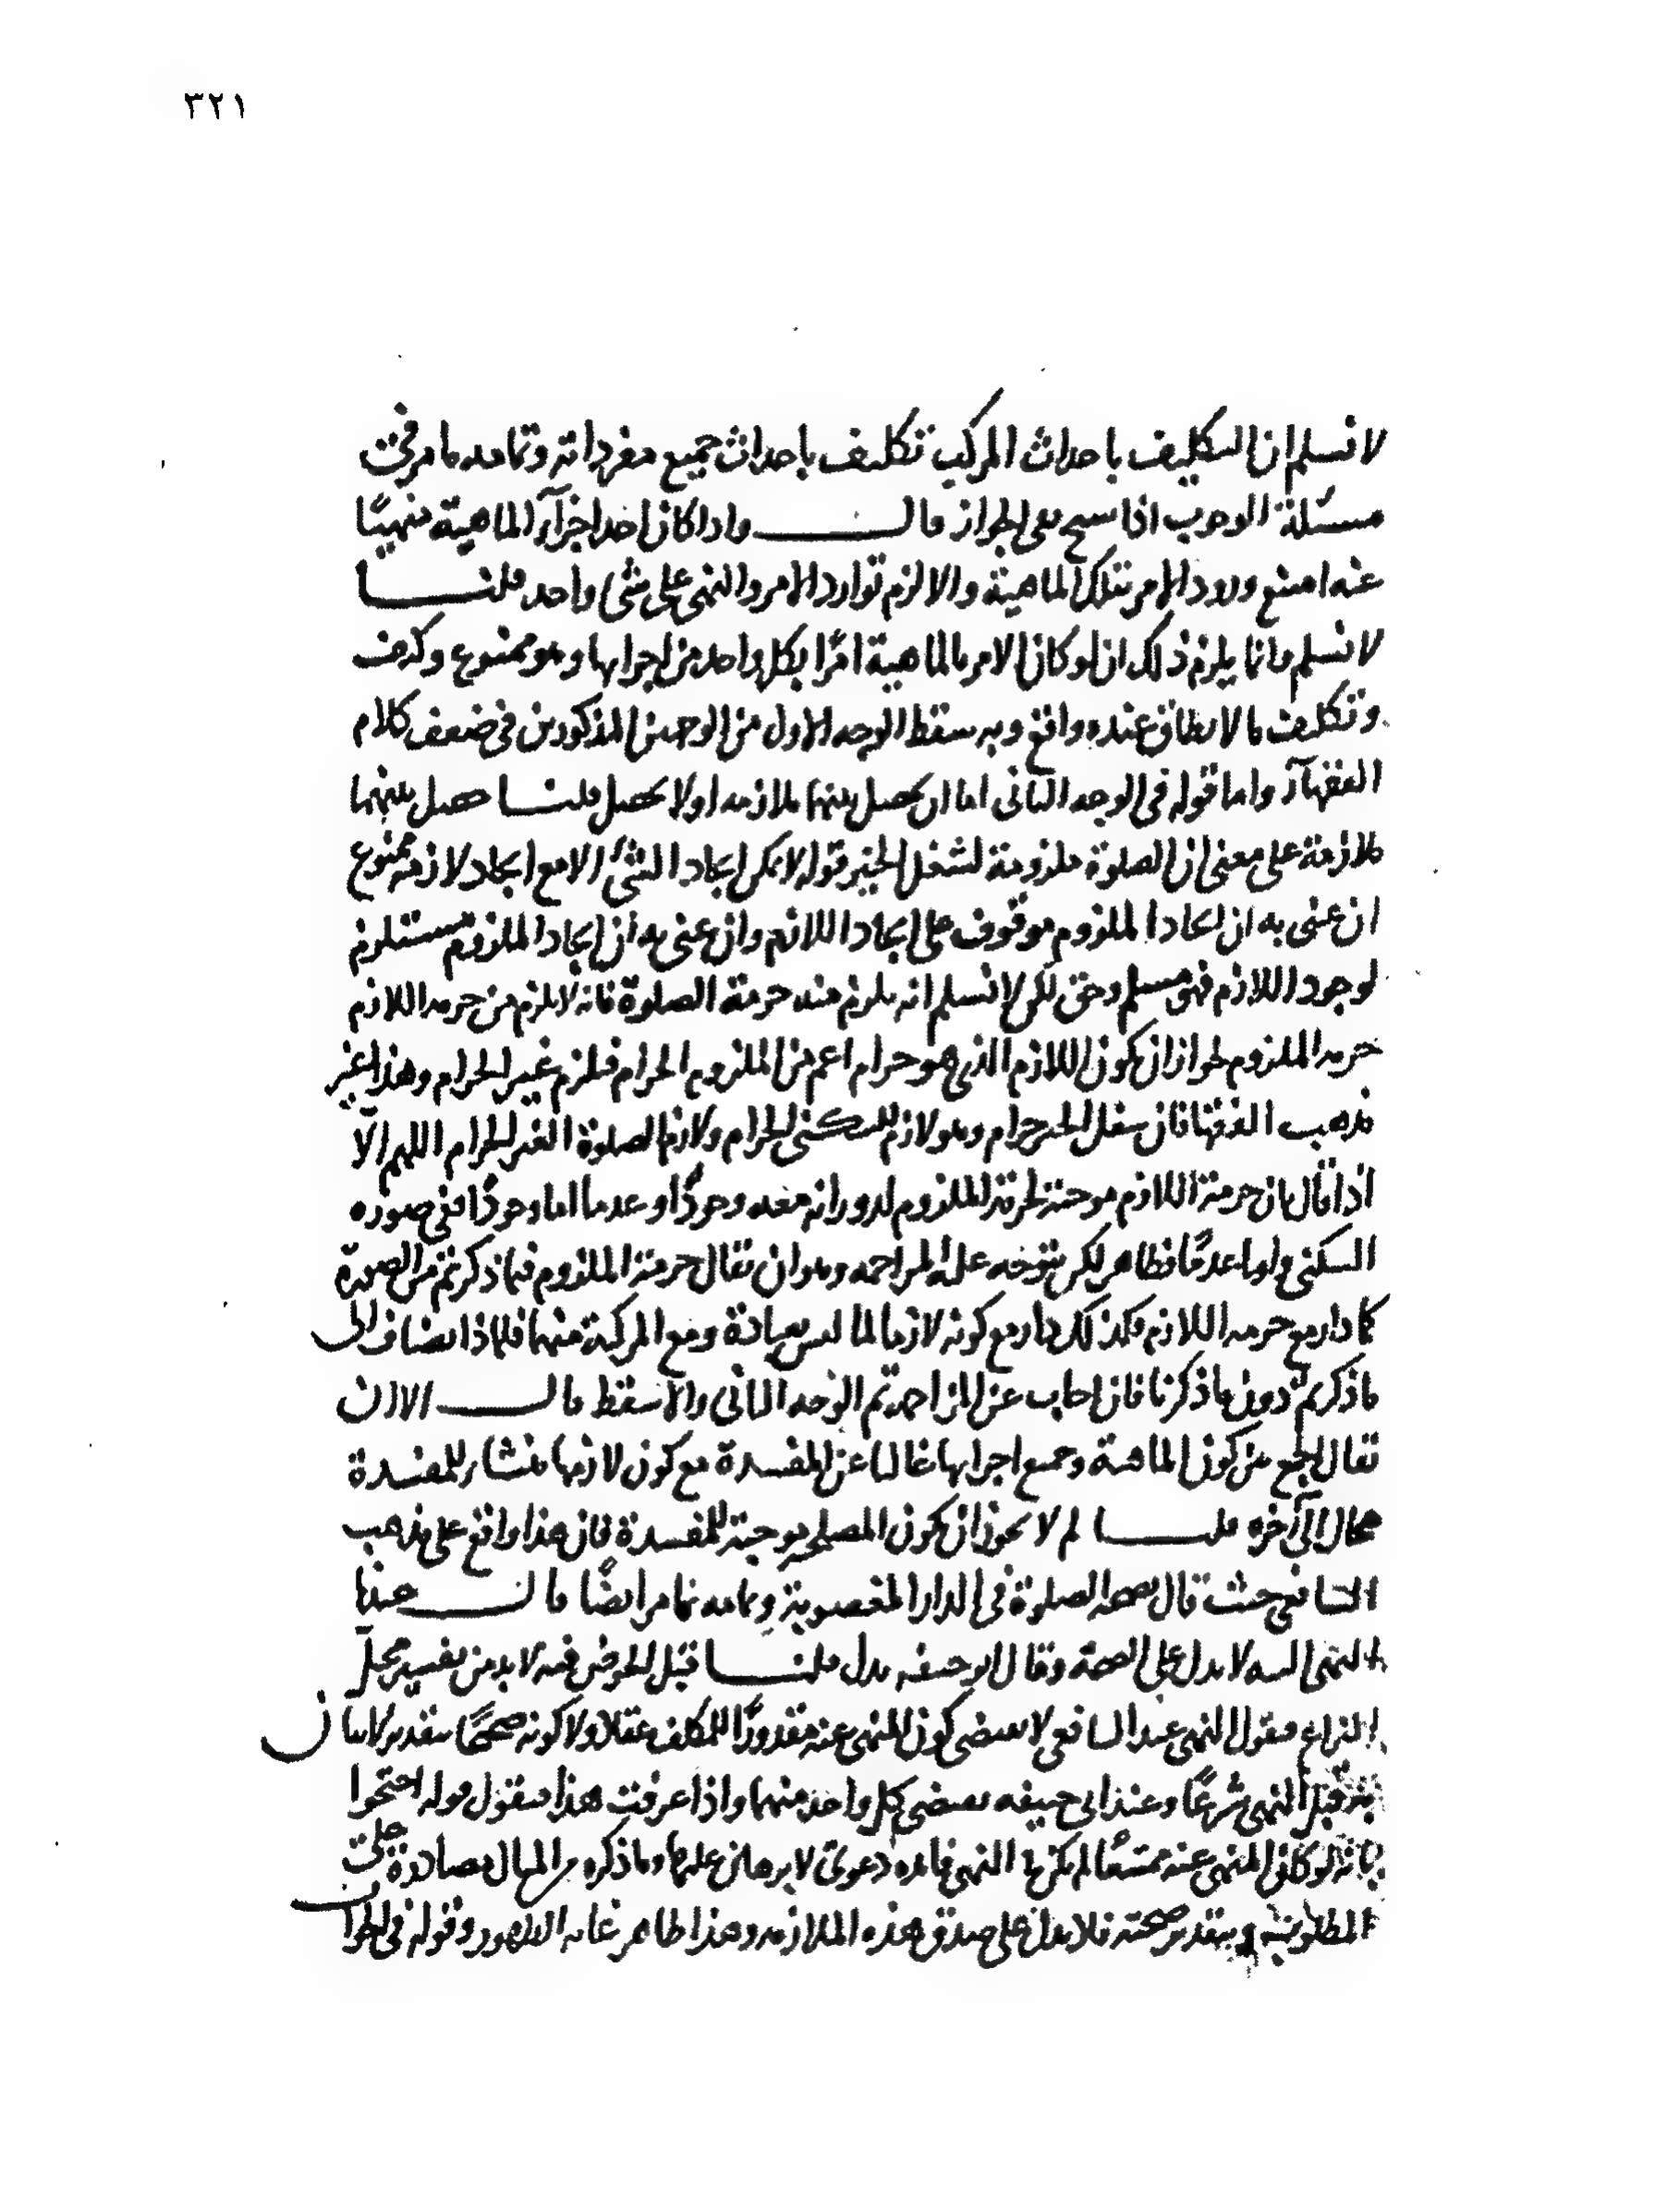 ٣٢١
لا نسلم ان التكليف باحداث المركب تكليف باحداث جميع مفرداته وتمامه ما مر في
مسئلة الوجوب اذا نسخ بقى الجواز قال واذا كان احد اجزآء الماهية منهيًا
عنه امتنع ورود الامر بتلك الماهية والا لزم توارد الامر والنهى على شئ واحد قلنا
لا نسلم وانما يلزم ذلك ان لو كان الامر بالماهية امرًا بكل واحد من اجزايها وهو ممنوع وكيف
وتكليف ما لا يطاق عنده واقع وبه سقط الوجه الاول من الوجهين المذكورين في ضعف كلام
الفقهآء واما قوله في الوجه الثانى اما ان يحصل بينهما ملازمه او لا يحصل قلنا حصل بينهما
ملازمة على معنى ان الصلوة ملزومة لشغل الحيز قوله لا يمكن ايجاد الشئ الا مع ايجاد لازمه ممنوع
ان عنى به ان ايجاد الملزوم موقوف على ايجاد اللازم وان عنى به ان ايجاد الملزوم مستلزم
لوجود اللازم فهو مسلم وحق لكن لا نسلم انه يلزم منه حرمة الصلوة فانه لا يلزم من حرمه اللازم
حرمه الملزوم لجواز ان يكون اللازم الذى هو حرام اعم من الملزوم الحرام فيلزم غير الحرام وهذا عين
مذهب الفقها فان شغل الحيز حرام وهو لازم للسكنى الحرام ولازم الصلوة الغير الحرام اللهم الّا
اذا قال بان حرمة اللازم موجبة لحرمة الملزوم لدورانه معه وجودًا وعدما اما وجودًا ففى صوره
السكنى واما عدمًا فظاهر لكن يتوجه عليه المزاحمه وهو ان يقال حرمة الملزوم فيما ذكرتم من الصورة
كما دار مع حرمه اللازم فكذلك دار مع كونه لازما لما ليس بعبادة ومع المركبة منهما فلماذا يضاف الى
ما ذكرتم دون ما ذكرنا فان اجاب عن المزاحمه تم الوجه الثانى والا سقط قال الا ان
يقال الجمع من كون الماهية وجميع اجزايها خاليا عن المفسدة مع كون لازمها منشاء للمفسدة
محال الى آخره قلنا لم لا يجوز ان يكون المصلحه موجبة للمفسدة فان هذا واقع على مذهب
الشافعى حيث قال بصحه الصلوة في الدار المغصوبة وتمامه تما مر ايضًا قال عندنا
النهى السه لا يدل على الصحة وقال ابو حنيفه يدل قلنا قبل الخوض فيه لا بد من تفسير محل
النزاع فنقول النهى عند الشافعى لا يقتضى كون المنهى عنه مقدورًا للمكلف عقلا ولا كونه صحيحًا بتقدير الاتيان
به قبل النهى شرعًا وعند ابى حنيفه يقتضى كل واحد منهما واذا عرفت هذا فنقول قوله احتجوا
بانه لو كان المنهى عنه ممتنعًا لم يكن في النهى فايده دعوى لا برهان عليها وما ذكره من المثال مصادرة على
المطلوب وبتقدير صحته فلا يدل على صدق هذه الملازمه وهذا ظاهر غايه الظهور وقوله في الجواب